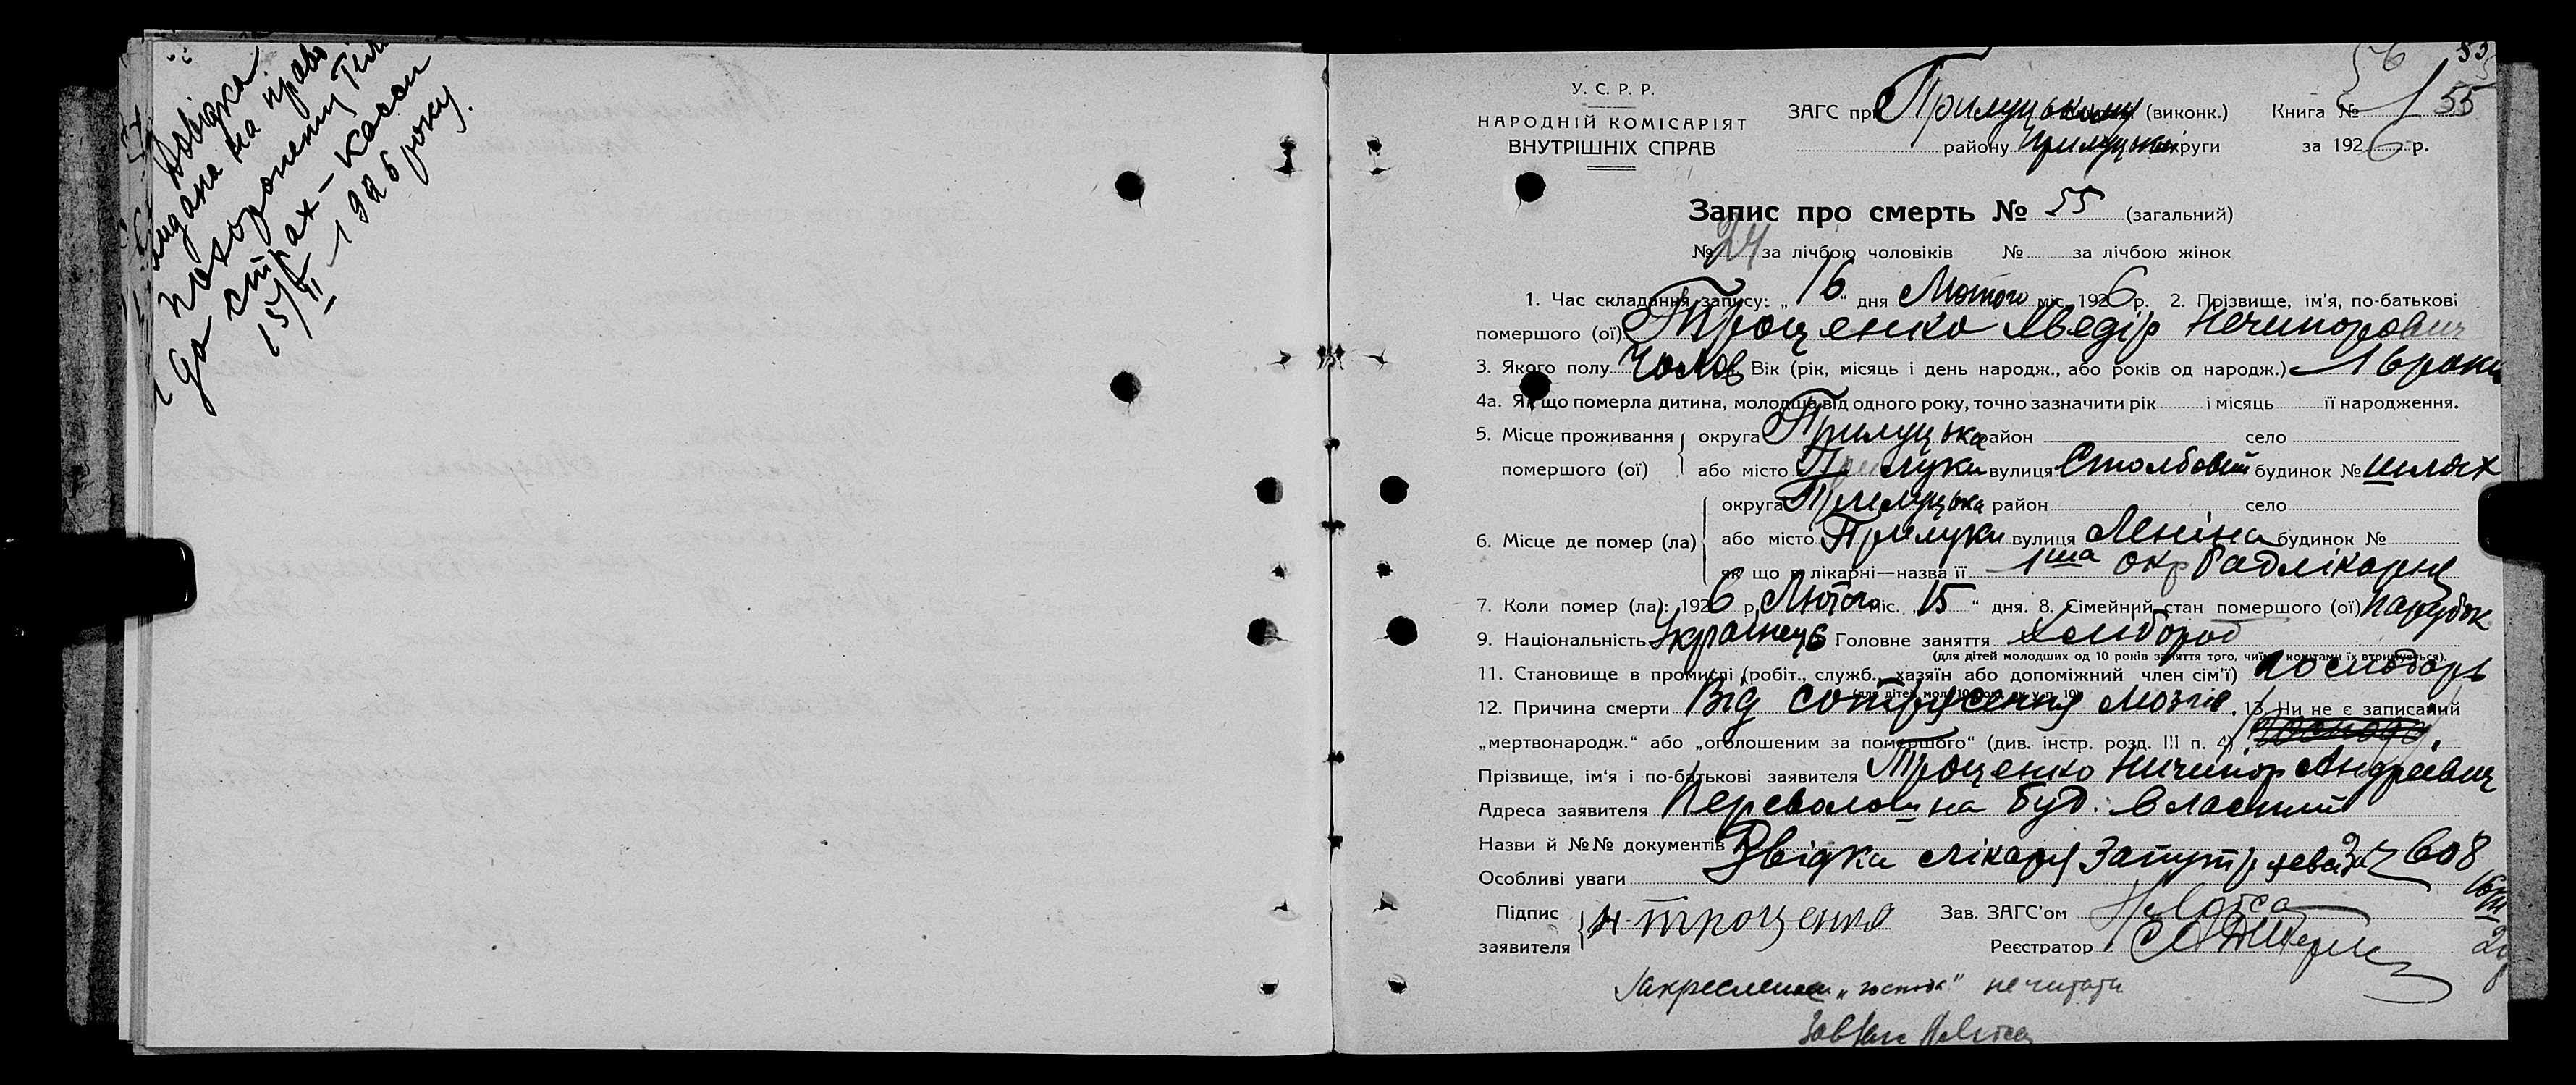 Довідка
видана на право
похоронення тіла
до страх-каси
15/II 1926 року.
56
55
У. С. Р. Р.
НАРОДНІЙ КОМІСАРІЯТ
ВНУТРІШНІХ СПРАВ
ЗАГС при Прилуцькому (виконк.) Книга № 1 55
району Прилуцької округи за 1926 р.
Запис про смерть № 55 (загальний)
№ 24 за лічбою чоловіків № за лічбою жінок
1. Час складання запису: „16“ дня Лютого міс. 1926 р. 2. Прізвище, ім'я, по-батькові
помершого (ої) Троценко Хведір Нечипорович
3. Якого полу Чолов Вік (рік, місяць і день народж., або років од народж.) 16 роки
4а. Як що померла дитина, молодша від одного року, точно зазначити рік і місяць її народження.
5. Місце проживання помершого (ої) округа Прилуцька район село
або місто Прилуки вулиця Столбовий будинок № шлях
6. Місце де помер (ла) округа Прилуцька район село
або місто Прилуки вулиця Леніна будинок №
як що в лікарні—назва її 1ша окр Радлікарня
7. Коли помер (ла): 1926 р. Лютого міс. „15“ дня. 8. Сімейний стан помершого (ої) парубок
9. Національність Українець Головне заняття Хлібороб
(для дітей молодших од 10 років заняття того, чиїми коштами їх втримується).
11. Становище в промислі (робіт., служб., хазяїн або допоміжний член сім'ї) господарь
(для дітей мол. 10 рок. як у п. 10)
12. Причина смерти Від сотрясення мозгів. 13. Чи не є записаний
„мертвонародж.“ або „оголошеним за помершого“ (див. інстр. розд. III п. 4)
Прізвище, ім'я і по-батькові заявителя Троценко Ничипор Андрієвич
Адреса заявителя Переволочна буд. власний
Назви й №№ документів
Звідка лікаря за № 608
Особливі уваги
Підпис заявителя Н. Троценко Зав. ЗАГС'ом
Реєстратор
Закреслене „господ“ не читати
Завзагс